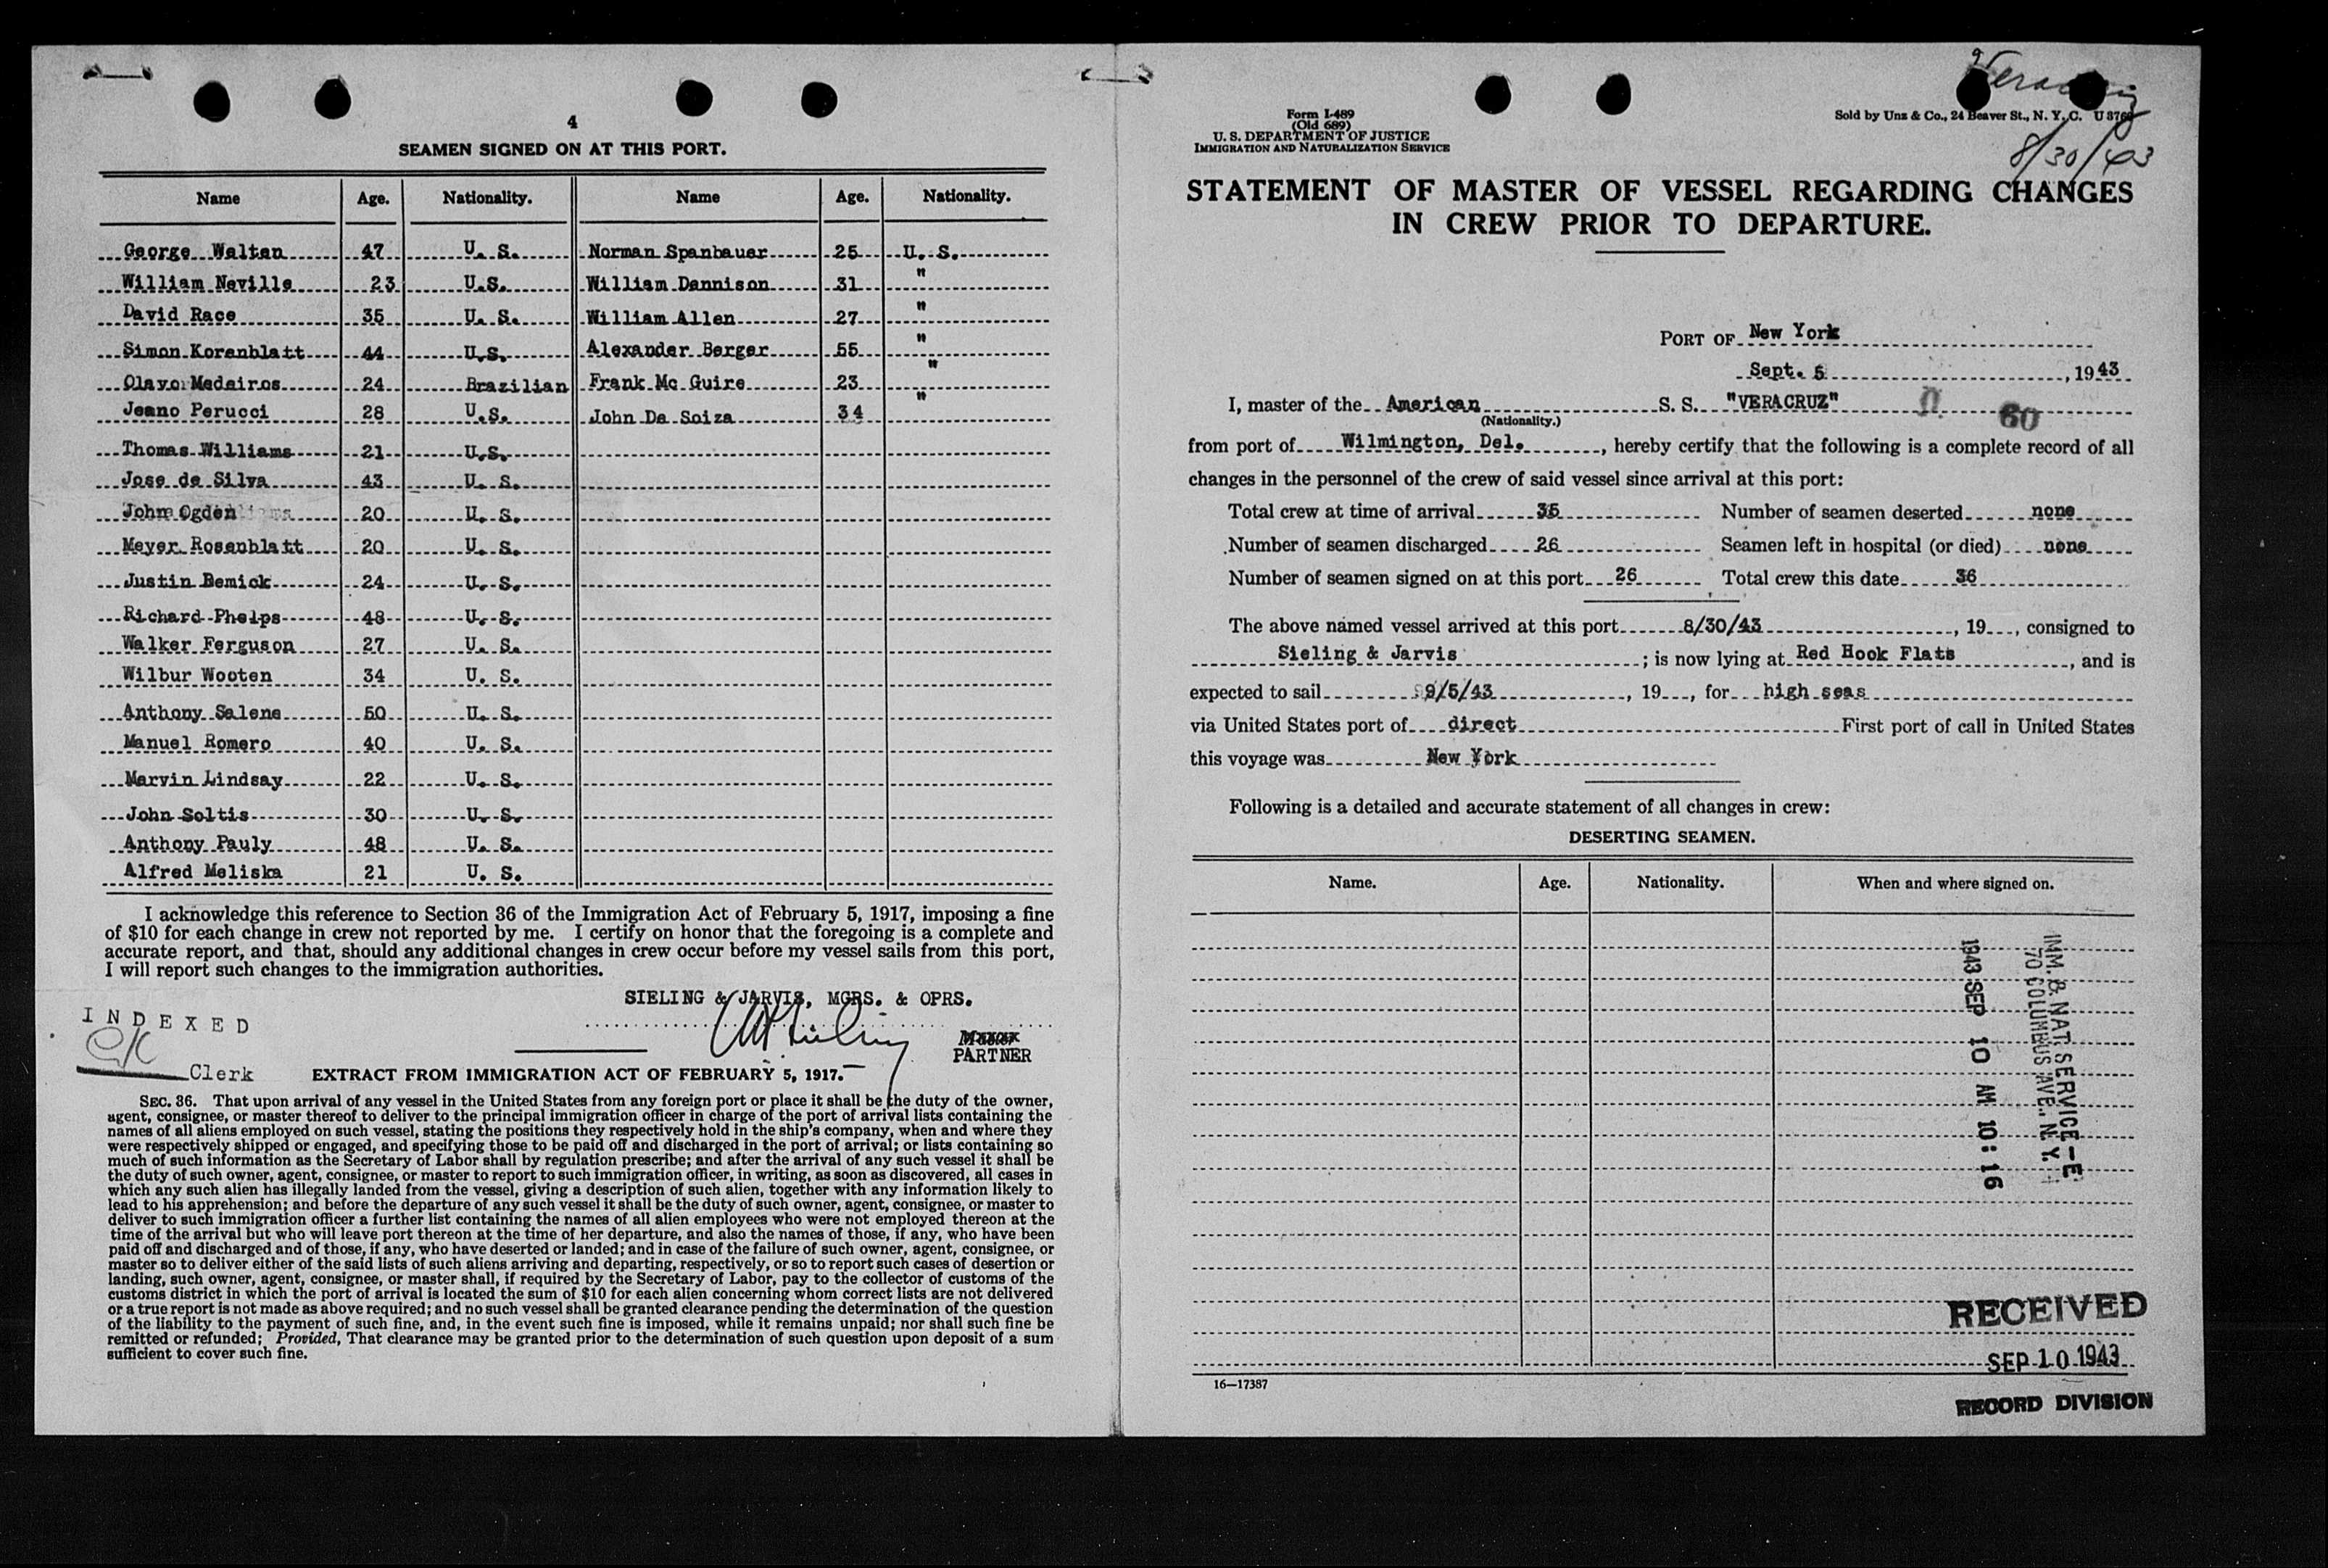 4
SEAMEN SIGNED ON AT THIS PORT.
Name Age. Nationality. Name Age. Nationality.
George Walten 47 U. S. Norman Spanbauer 25 U. S.
William Neville 23 U.S. William Dannison 31 "
David Race 35 U. S. William Allen 27 "
Simon Korenblatt 44 U.S. Alexander Berger 55 "
Olavo Medairos 24 Brazilian Frank Mc Guire 23 "
Jeano Perucci 28 U.S. John De Soiza 34 "
Thomas Williams 21 U.S.
Jose de Silva 43 U. S.
John Ogden 20 U. S.
Meyer Rosenblatt 20 U. S.
Justin Bemick 24 U. S.
Richard Phelps 48 U. S.
Walker Ferguson 27 U. S.
Wilbur Wooten 34 U. S.
Anthony Salene 50 U. S.
Manuel Romero 40 U. S.
Marvin Lindsay 22 U. S.
John Soltis 30 U. S.
Anthony Pauly 48 U. S.
Alfred Meliska 21 U. S.
I acknowledge this reference to Section 36 of the Immigration Act of February 5, 1917, imposing a fine
of $10 for each change in crew not reported by me. I certify on honor that the foregoing is a complete and
accurate report, and that, should any additional changes in crew occur before my vessel sails from this port,
I will report such changes to the immigration authorities.
SIELING & JARVIS, MGRS. & OPRS.
INDEXED
PARTNER
Clerk
EXTRACT FROM IMMIGRATION ACT OF FEBRUARY 5, 1917.
SEC. 36. That upon arrival of any vessel in the United States from any foreign port or place it shall be the duty of the owner,
agent, consignee, or master thereof to deliver to the principal immigration officer in charge of the port of arrival lists containing the
names of all aliens employed on such vessel, stating the positions they respectively hold in the ship's company, when and where they
were respectively shipped or engaged, and specifying those to be paid off and discharged in the port of arrival; or lists containing so
much of such information as the Secretary of Labor shall by regulation prescribe; and after the arrival of any such vessel it shall be
the duty of such owner, agent, consignee, or master to report to such immigration officer, in writing, as soon as discovered, all cases in
which any such alien has illegally landed from the vessel, giving a description of such alien, together with any information likely to
lead to his apprehension; and before the departure of any such vessel it shall be the duty of such owner, agent, consignee, or master to
deliver to such immigration officer a further list containing the names of all alien employees who were not employed thereon at the
time of the arrival but who will leave port thereon at the time of her departure, and also the names of those, if any, who have been
paid off and discharged and of those, if any, who have deserted or landed; and in case of the failure of such owner, agent, consignee, or
master so to deliver either of the said lists of such aliens arriving and departing, respectively, or so to report such cases of desertion or
landing, such owner, agent, consignee, or master shall, if required by the Secretary of Labor, pay to the collector of customs of the
customs district in which the port of arrival is located the sum of $10 for each alien concerning whom correct lists are not delivered
or a true report is not made as above required; and no such vessel shall be granted clearance pending the determination of the question
of the liability to the payment of such fine, and, in the event such fine is imposed, while it remains unpaid; nor shall such fine be
remitted or refunded; Provided, That clearance may be granted prior to the determination of such question upon deposit of a sum
sufficient to cover such fine.
Form I-489
(Old 689)
U. S. DEPARTMENT OF JUSTICE
IMMIGRATION AND NATURALIZATION SERVICE
Sold by Unz & Co., 24 Beaver St., N. Y. C.
8/30/43
STATEMENT OF MASTER OF VESSEL REGARDING CHANGES
IN CREW PRIOR TO DEPARTURE.
PORT OF New York
Sept. 5, 1943
I, master of the American S. S. "VERACRUZ" 60
(Nationality.)
from port of Wilmington, Del., hereby certify that the following is a complete record of all
changes in the personnel of the crew of said vessel since arrival at this port:
Total crew at time of arrival 35 Number of seamen deserted none
Number of seamen discharged 26 Seamen left in hospital (or died) none
Number of seamen signed on at this port 26 Total crew this date 36
The above named vessel arrived at this port 8/30/43, 19, consigned to
Sieling & Jarvis; is now lying at Red Hook Flats, and is
expected to sail 9/5/43, 19, for high seas
via United States port of direct First port of call in United States
this voyage was New York
Following is a detailed and accurate statement of all changes in crew:
DESERTING SEAMEN.
Name. Age. Nationality. When and where signed on.
IMM. & NAT. SERVICE-E
70 COLUMBUS AVE., N. Y.
1943 SEP 10 AM 10:16
RECEIVED
SEP 10 1943
16—17387
RECORD DIVISION